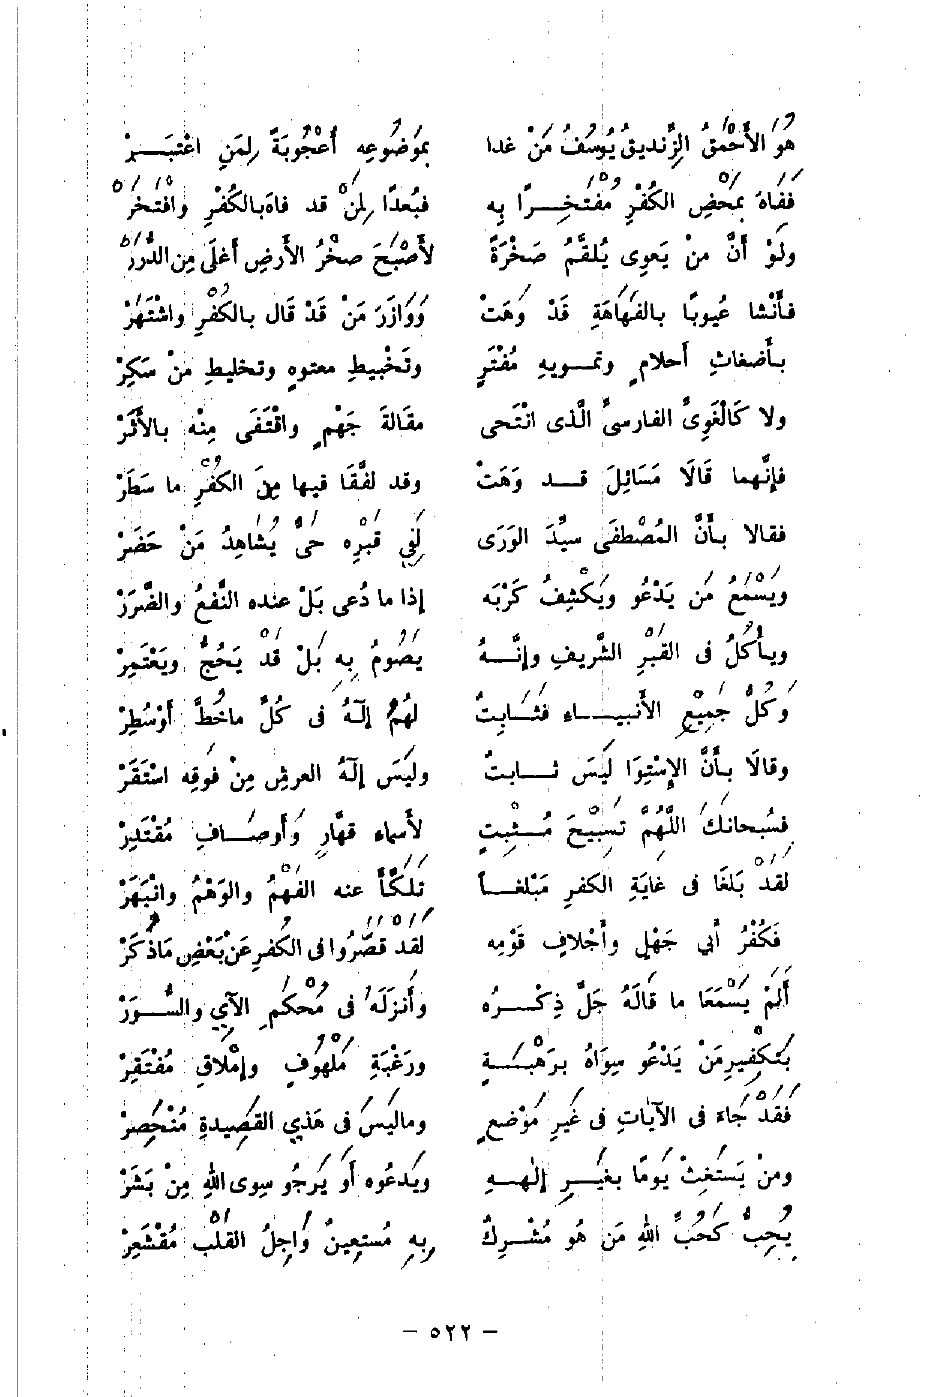 هُوَ الأَحْمَقُ الزِّنديقُ يُوسُفُ مَنْ غدا بمَوْضُوعِه أُعْجُوبَةً لِمَنِ اعْتَبَـــرْ
فَفَاهَ بمَحْضِ الكُفْرِ مُفْتَخِـــرًا بِهِ فبُعدًا لِمنْ قد فاهَ بالكُفْرِ وافْتخَرْ
ولَوْ أنَّ منْ يَعوِى يُلقَّمُ صَخْرَةً لأَصْبَحَ صخْرُ الأرضِ أغلَى مِن الدُّرَرْ
فأَنْشا عُيوبًا بالفَهَاهَةِ قَدْ وَهَتْ وَوَازَرَ مَنْ قَدْ قَال بالكُفْرِ واشْتَهَرْ
بأَضغاثِ أحلامٍ وتمـــويهِ مُفْتَرٍ وتَخْبيطِ معتوهٍ وتخليطِ منْ سَكِرْ
ولا كَالْغَوِىِّ الفارسىِّ الَّذى انْتَحى مقَالةَ جَهْمٍ واقْتَفَى مِنْه بالأَثَرْ
فإنَّهما قَالَا مَسَائِلَ قـــد وَهَتْ وقد لفَّقَا فيها مِنَ الكُفْرِ ما سَطَرْ
فقالا بأَنَّ المُصْطفَى سيِّدَ الوَرَى لَفِي قَبْرِه حَىٌّ يُشاهِدُ مَنْ حَضَرْ
ويَسْمَعُ مَن يَدْعُو ويَكْشِفُ كَرْبَه إذا ما دُعى بَلْ عنده النَّفعُ والضَّرَرْ
ويأكُلُ فى القَبْرِ الشَّريفِ وإنَّـــهُ يَصُومُ بِهِ بَلْ قَدْ يَحُجُّ ويَعْتَمِرْ
وكُلُّ جَمِيْعِ الأنبيـــاءِ فثَـــابِتٌ لهُمُ إلَهُ فى كُلِّ ماخُطَّ أوْسُطِرْ
وقالَا بأَنَّ الاِسْتِوَا لَيسَ ثـــابتٌ وليَسَ إلَهُ العرشِ مِنْ فَوقِه اسْتَقَرْ
فسُبحانكَ اللَّهُمَّ تَسبِيْحَ مُـــثبِتٍ لأَسماءِ قهَّارٍ وَأوصـــافِ مُقْتَدِرْ
لقَدْ بَلغَا فى غايَةِ الكفرِ مَبْلغـــاً تَلكَّأَ عنه الفَهْمُ والوَهْمُ وانْبَهَرْ
فَكُفْرُ أبي جَهْلٍ وأجْلافِ قَوْمِه لقَد قصَّرُوا فى الكُفرِ عَنْ بَعْضِ مَاذَكَرْ
أَلمَ يَسْمَعَا ما قالَهُ جَلَّ ذِكْـــرُه وأَنزَلَهُ فى مُحْكَمِ الآيِ والسُّـــوَرْ
بتَكفِيرِ مَنْ يَدْعُو سِوَاهُ برَهْبَـــةٍ ورَغْبَةِ مَلْهُوفٍ وإمْلاقِ مُفْتَقِرْ
فقَدْ جَاءَ فى الآيَاتِ فى غَيرِ مَوْضعٍ وماليسَ فى هَذي القصِيدةِ مُنْحَصِرْ
ومنْ يَستَغِثْ يَومًا بغَيـــرِ إلهِـــهِ ويَدعُوه أو يَرجُو سِوى اللهِ مِنْ بَشَرْ
يُحِبُّ كَحُبِّ اللهِ مَن هُو مُشْـــرِكٌ بِهِ مُستَعِينٌ وَاجِلُ القَلبِ مُقْشَعِرْ
– ٥٢٢ –